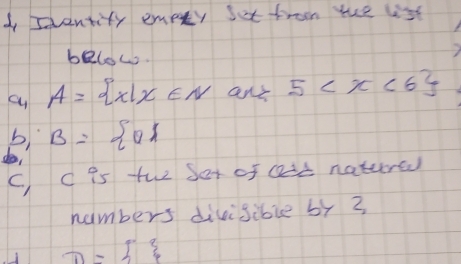 1, Identify empty set from the list
below.
a, A = {x|x ∈ N and 5 < x < 6}
b, B = {0}
c, C is the set of odd natural
numbers divisible by 2
d D = { }